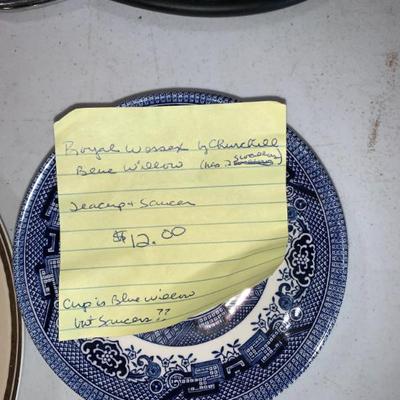 Royal Wessex by Churchill
Blue Willow (has 2 swallows)
Teacup + Saucer
$12.00
Cup is Blue Willow
but Saucer??